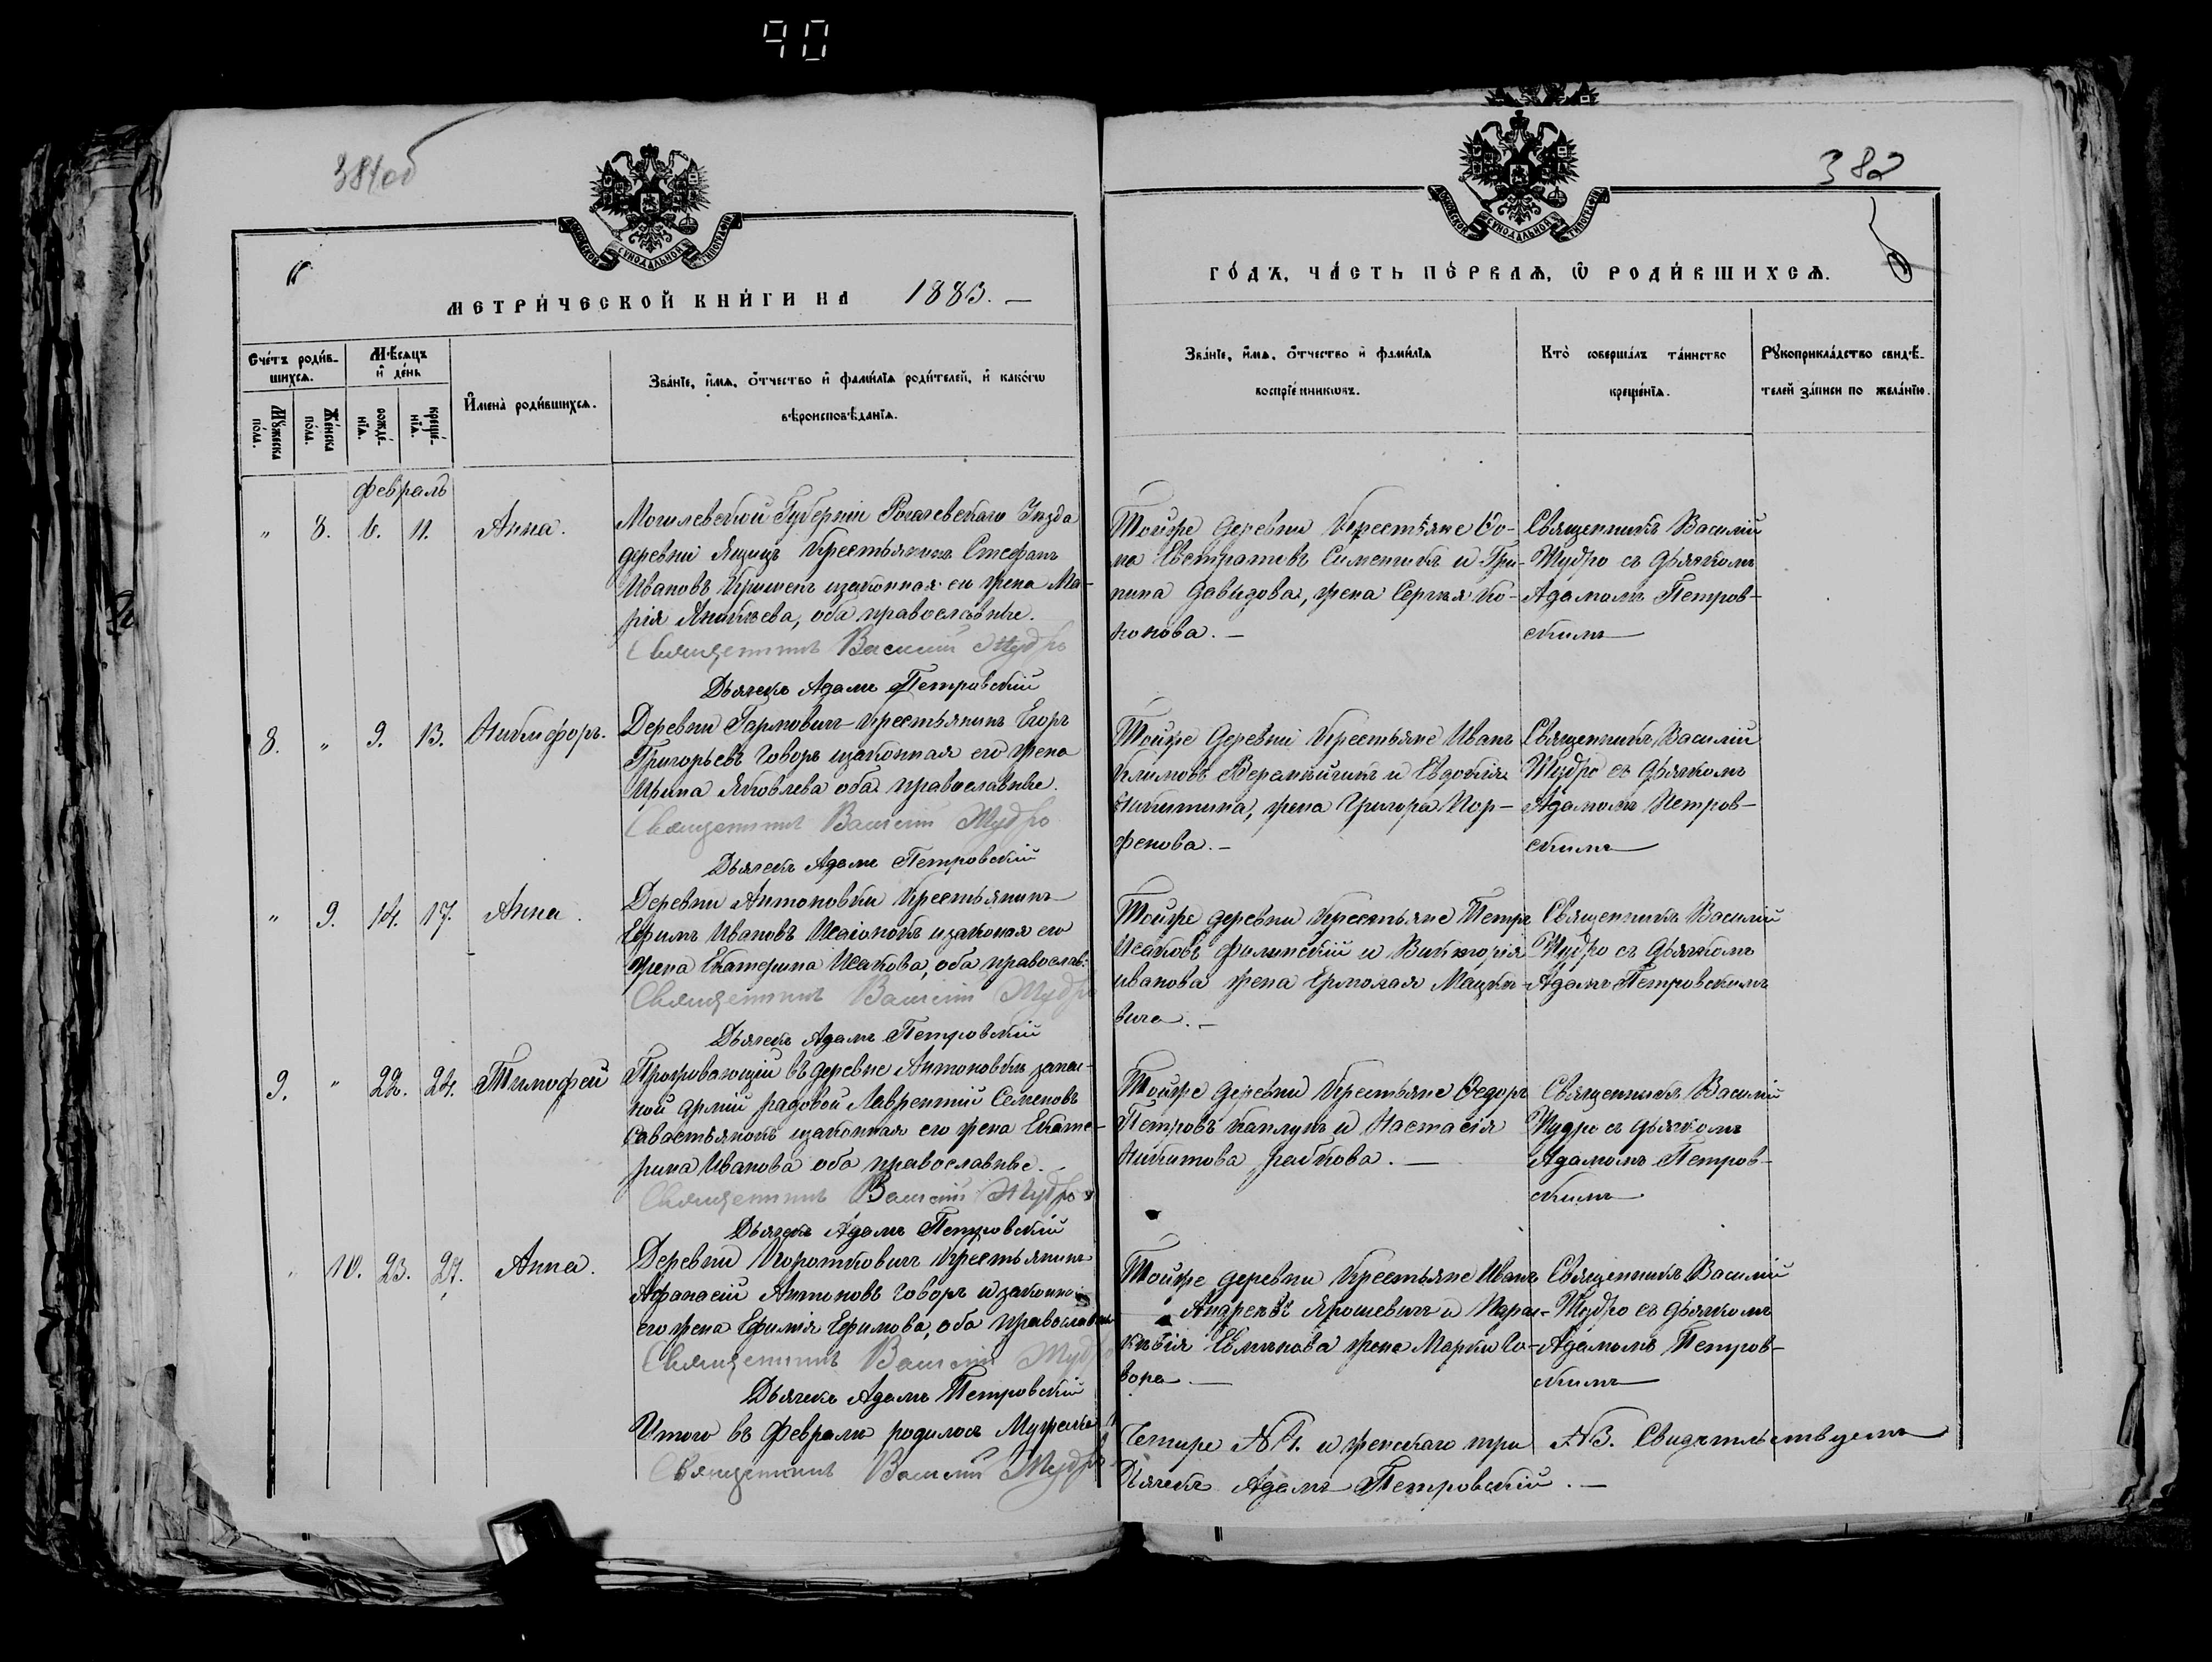 90
381об
382
МОСКОВСКОЙ СѴНОДАЛЬНОЙ ТИПОГРАФІИ
МОСКОВСКОЙ СѴНОДАЛЬНОЙ ТИПОГРАФІИ
МЕТРИ́ЧЕСКОЙ КНИ́ГИ НА 1883. —
ГО́ДЪ, ЧА́СТЬ ПЕ́РВАѦ, Ѽ РОДИ́ВШИХСѦ.
Сче́тъ роди́в-
шихсѧ.
Мѣ́сѧцъ
и҆ де́нь
Мꙋ́жеска
по́ла.
Же́нска
по́ла.
рожде́-
нїѧ.
креще́-
нїѧ.
И҆мена̀ роди́вшихсѧ.
Зва́нїе, и҆́мѧ, ѻ҆́тчество и҆ фамѝлїѧ роди́телей, и҆ како́гѡ
вѣроисповѣ́данїѧ.
Зва́нїе, и҆́мѧ, ѻ҆́тчество и҆ фами́лїѧ
воспрїе́мникѡвъ.
Кто̀ соверша́лъ та́инство
креще́нїѧ.
Рꙋкоприкла́дство свидѣ́-
телей за́писи по жела́нїю.
Февраль
„ 8. 6. 11. Анна.
Могилевской Губерніи Рогачевскаго Уезда
деревни Ящицъ Крестьянинъ Стефанъ
Ивановъ изаконная его жена Ма-
рія, оба православные.
Священникъ Василий Мудро
Дьячекъ Адамъ Петровскій
Тойже деревни Крестьяне Ѳо-
ма Евстратовъ Сименикъ и Гри-
пина Давыдова, жена Сергея Ко-
нонова. —
Священникъ Василій
Мудро съ дьячкомъ
Адамомъ Петров-
скимъ
8. „ 9. 13. Никифоръ.
Деревни Гармовичъ крестьянинъ Егоръ
Григорьевъ Говоръ изаконная его жена
Ирина Яковлева оба православные.
Священникъ Василий Мудро
Дьячекъ Адамъ Петровскій
Тойже деревни Крестьяне Иванъ
Климовъ и Евдокія
Никитина, жена Григора Пор-
фенова. —
Священникъ Василій
Мудро съ дьячкомъ
Адамомъ Петров-
скимъ
„ 9. 14. 17. Анна.
Деревни Антоновки Крестьянинъ
Ефимъ Ивановъ изаконая его
жена Екатерина Исакова, оба православ:
Священникъ Василий Мудро
Дьячекъ Адамъ Петровскій
Тойже деревни Крестьяне Петръ
Исаковъ Филипскій и Викторія
иванова жена Ермолая Мацке-
вича. —
Священникъ Василій
Мудро съ дьячкомъ
Адамъ Петровскимъ
9. „ 22. 24. Тимофей
Проживающій въ деревне Антоновкѣ запас-
ной арміи радовой Лаврентій Семеновъ
Савастьянокъ изаконная его жена Екате-
рина Иванова оба православные.
Священникъ Василий Мудро
Дьячекъ Адамъ Петровскій
Тойже деревни Крестьяне Ѳедоръ
Петровъ Каплунъ и Настасія
Никитова Райкова. —
Священникъ Василій
Мудро съ дьячкомъ
Адамомъ Петров-
скимъ
„ 10. 23. 27. Анна.
Деревни Короткович Крестьянинъ
Афанасій Антоновъ Говоръ изаконная
его жена Ефимія Ефимова, оба православн
Священникъ Василий Мудро
Дьячекъ Адамъ Петровскій
Тойже деревни Крестьяне Иванъ
Андреевъ Ярошевичъ и Парас-
кѣвія жена Марки Го-
вора —
Священникъ Василій
Мудро съ дьячкомъ
Адамомъ Петров-
скимъ
Итого въ Феврали родилось Мужеска
Четыре №4. и женскаго три №3. Свидѣтельствуемъ
Священникъ Василий Мудро
Дьячекъ Адамъ Петровскій. —